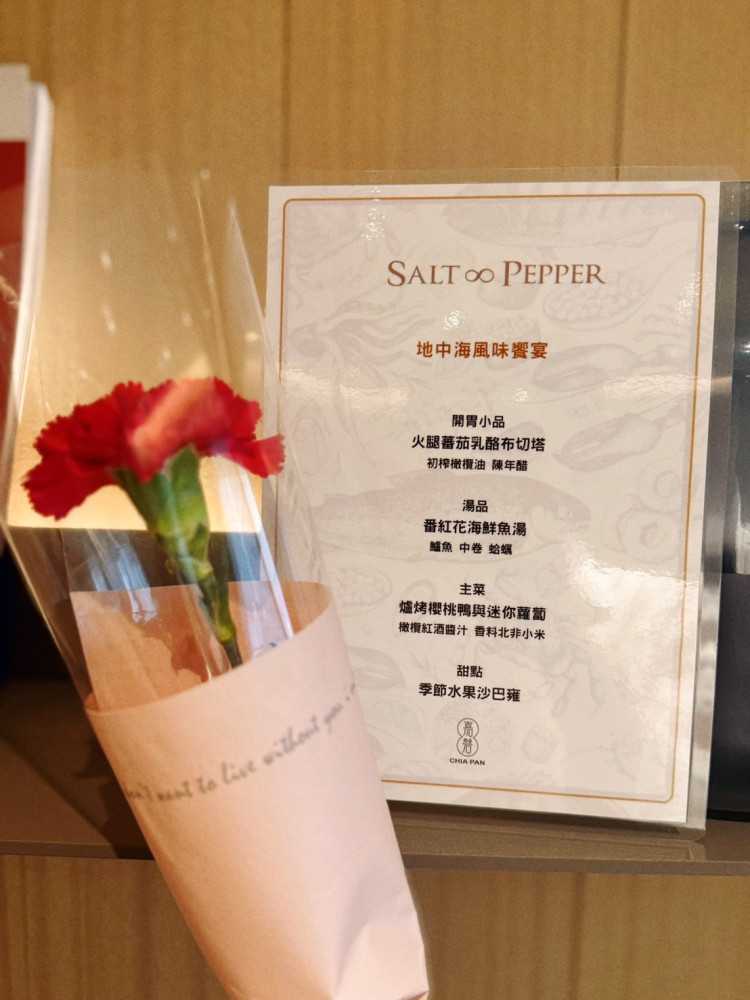 SALT ∞ PEPPER
地中海風味饗宴
開胃小品
火腿蕃茄乳酪布切塔
初榨橄欖油 陳年醋
湯品
番紅花海鮮魚湯
鱸魚 中卷 蛤蠣
主菜
爐烤櫻桃鴨與迷你蘿蔔
橄欖紅酒醬汁 香料北非小米
甜點
季節水果沙巴雍
嘉磐
CHIA PAN
want to live without you